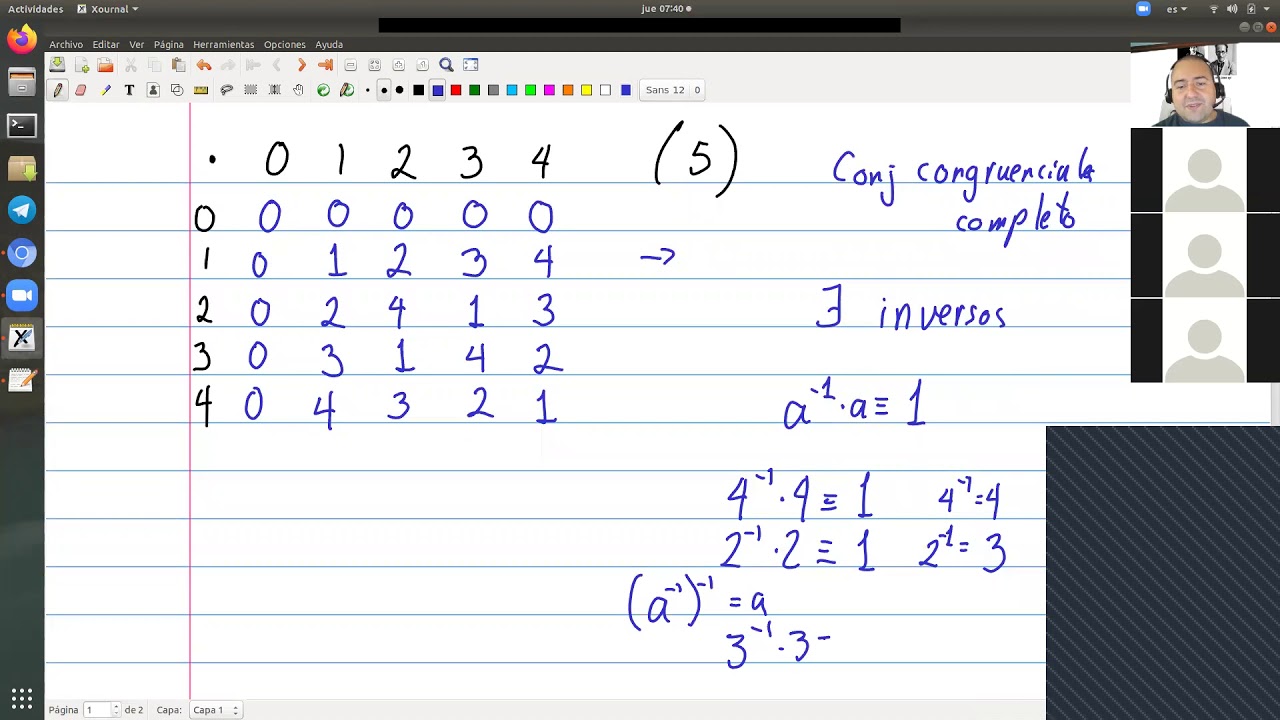 Actividades Xournal jue 07:40 es
Archivo Editar Ver Página Herramientas Opciones Ayuda
T Sans 12 0
· 0 1 2 3 4 (5)
0 0 0 0 0 0
1 0 1 2 3 4 →
2 0 2 4 1 3
3 0 3 1 4 2
4 0 4 3 2 1
Conj congruencial
completo
∃ inversos
a⁻¹·a≡ 1
4⁻¹·4 ≡ 1 4⁻¹=4
2⁻¹·2 ≡ 1 2⁻¹= 3
(a⁻¹)⁻¹ = a
3⁻¹·3 -
Página 1 de 2 Capa: Capa 1